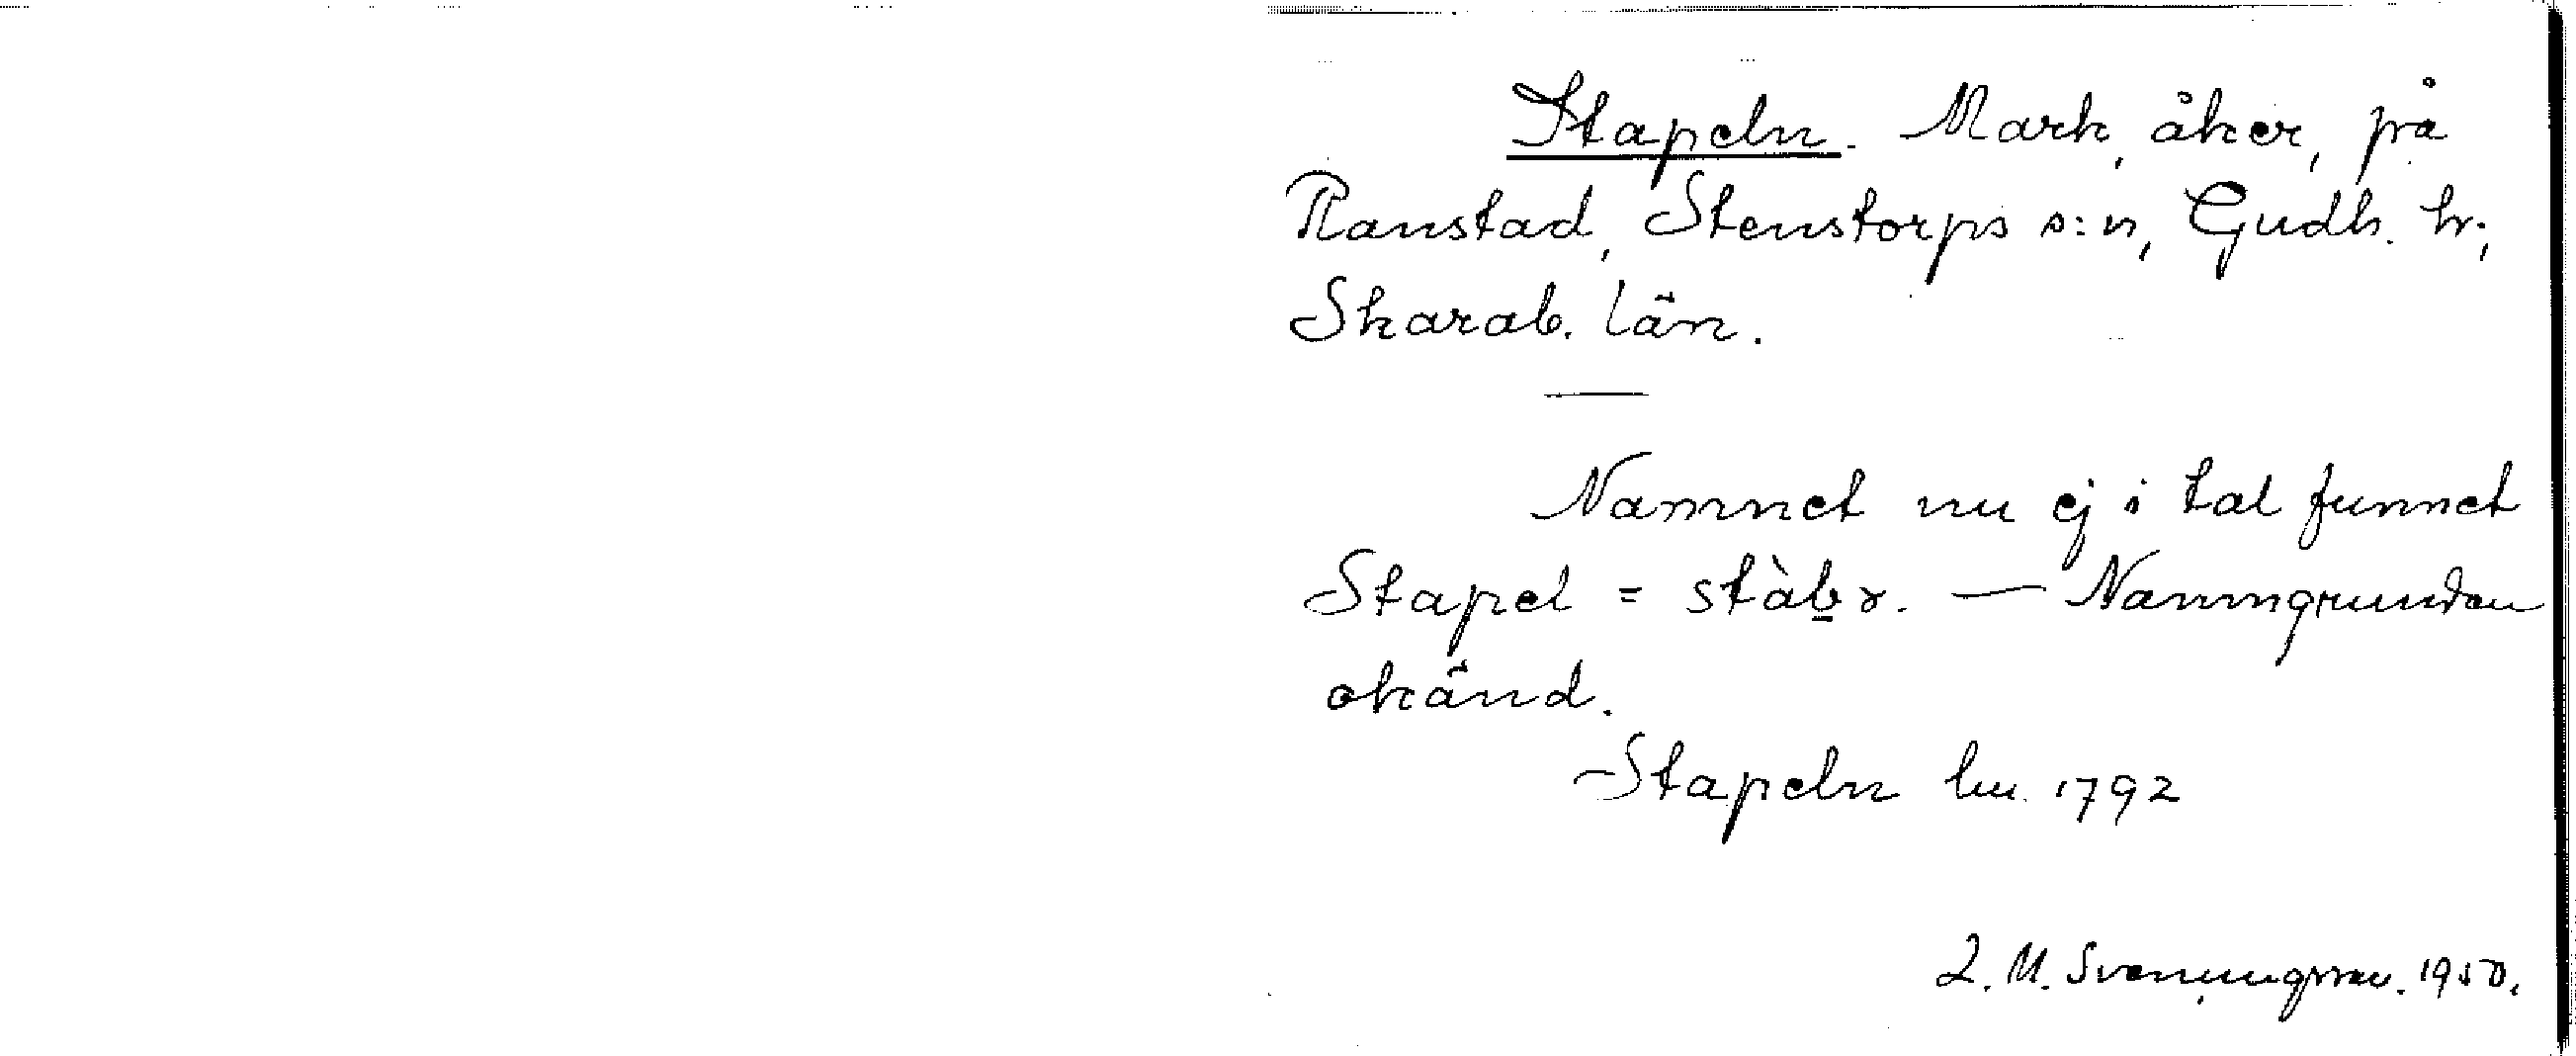 Stapeln. Mark, åker, på
Ranstad, Stenstorps s:n, Gudh. hr;
Skarab. län.
Namnet nu ej i tal funnet
Stapel = stàbɤ. — Namngrunden
okänd.
Stapeln lm. 1792
L. M. Svenungsson. 1950.